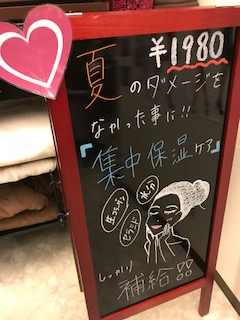 ¥1980
夏のダメージを
なかった事に!!
『集中保湿ケア』
水分
生コラーゲン
セラミド
しっかり
補給